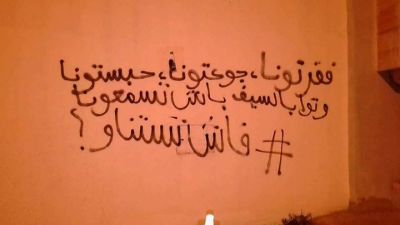 فقرتونا، جوعتونا، حبستونا
وتوا بالسيف باش تسمعونا
#فاش_نستناو؟